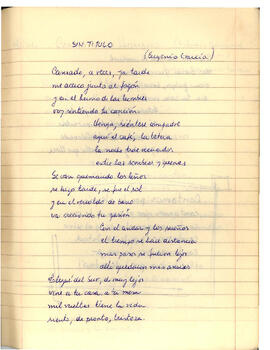 SIN TITULO
(Eugenio García)
Cansado, a veces, ya tarde
me acerco junto al fogón
y en el humo de los hombres
voy sintiendo tu canción
Venga, siéntese compadre
aquí el café, la tabua
la noche trae recuerdos
entre las sombras y quenas
Se van quemando los leños
se hizo tarde, se fue el sol
y en el rescoldo de
va creciendo tu pasión
Con el andar y los sueños
el tiempo se hace distancia
mas pasos se fueron lejos
allí quedaron mis ansias
Llegué del Sur, de muy lejos
vine a tu casa, a tu mesa
mil vueltas tiene la vida
siento, de pronto, tristeza.